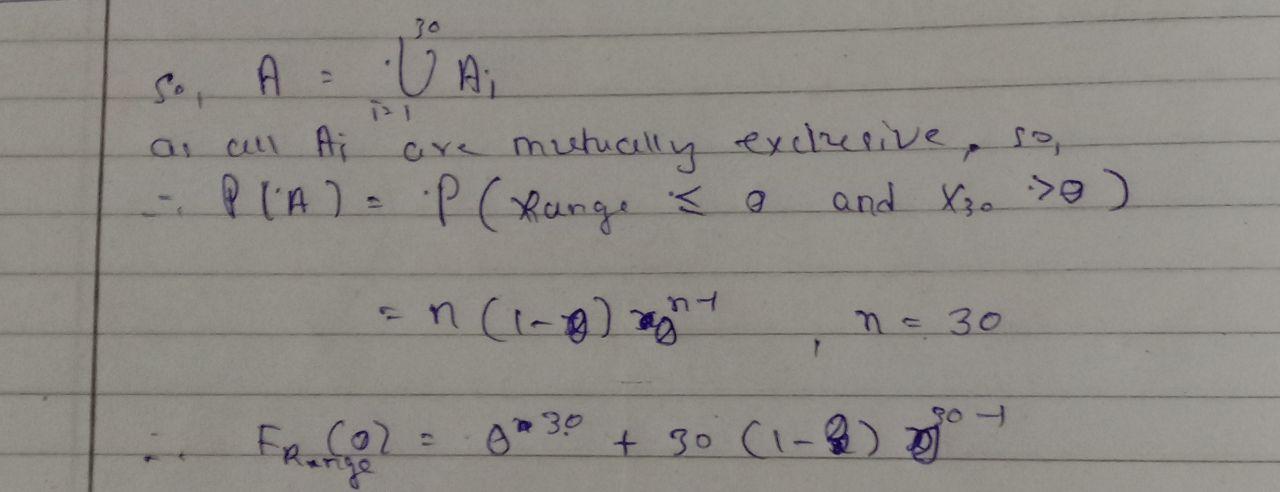 So, A = ⋃_{i=1}^{30} A_i
as all A_i are mutually exclusive, so,
∴ P(A) = P(Range ≤ θ and X_{30} > θ)
= n(1-θ) θ^{n-1} , n = 30
∴ F_{Range}(θ) = θ^{30} + 30 (1-θ) θ^{30-1}